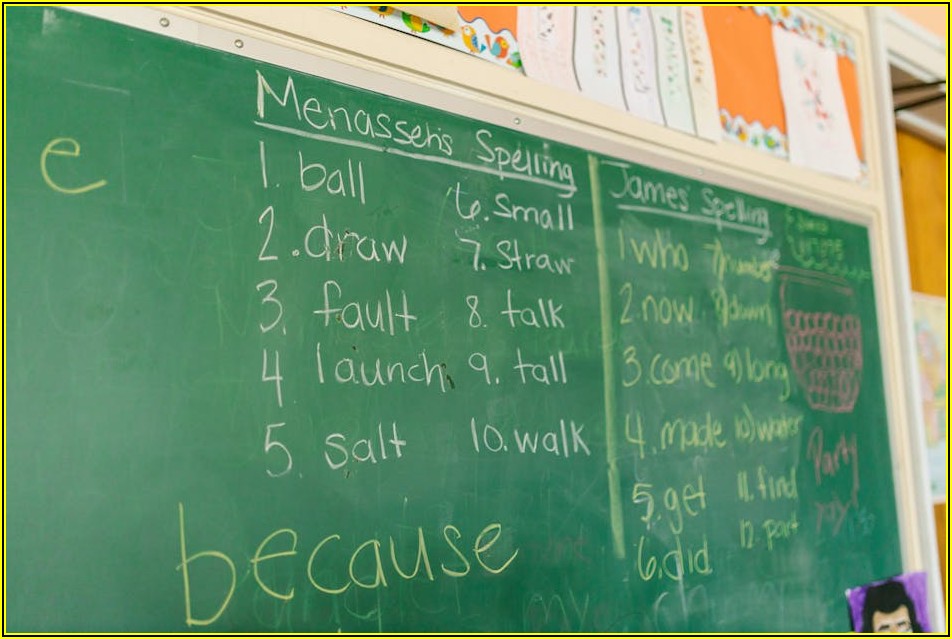 e
Menasseh's Spelling
1. ball
2. draw
3. fault
4 launch
5. salt
6. Small
7. Straw
8. talk
9. tall
10. walk
James' Spelling
1 who
2. now
3. come
4. made
5. get
6. did
7) number
8) down
9) long
10) water
11. find
12. part
Party
because